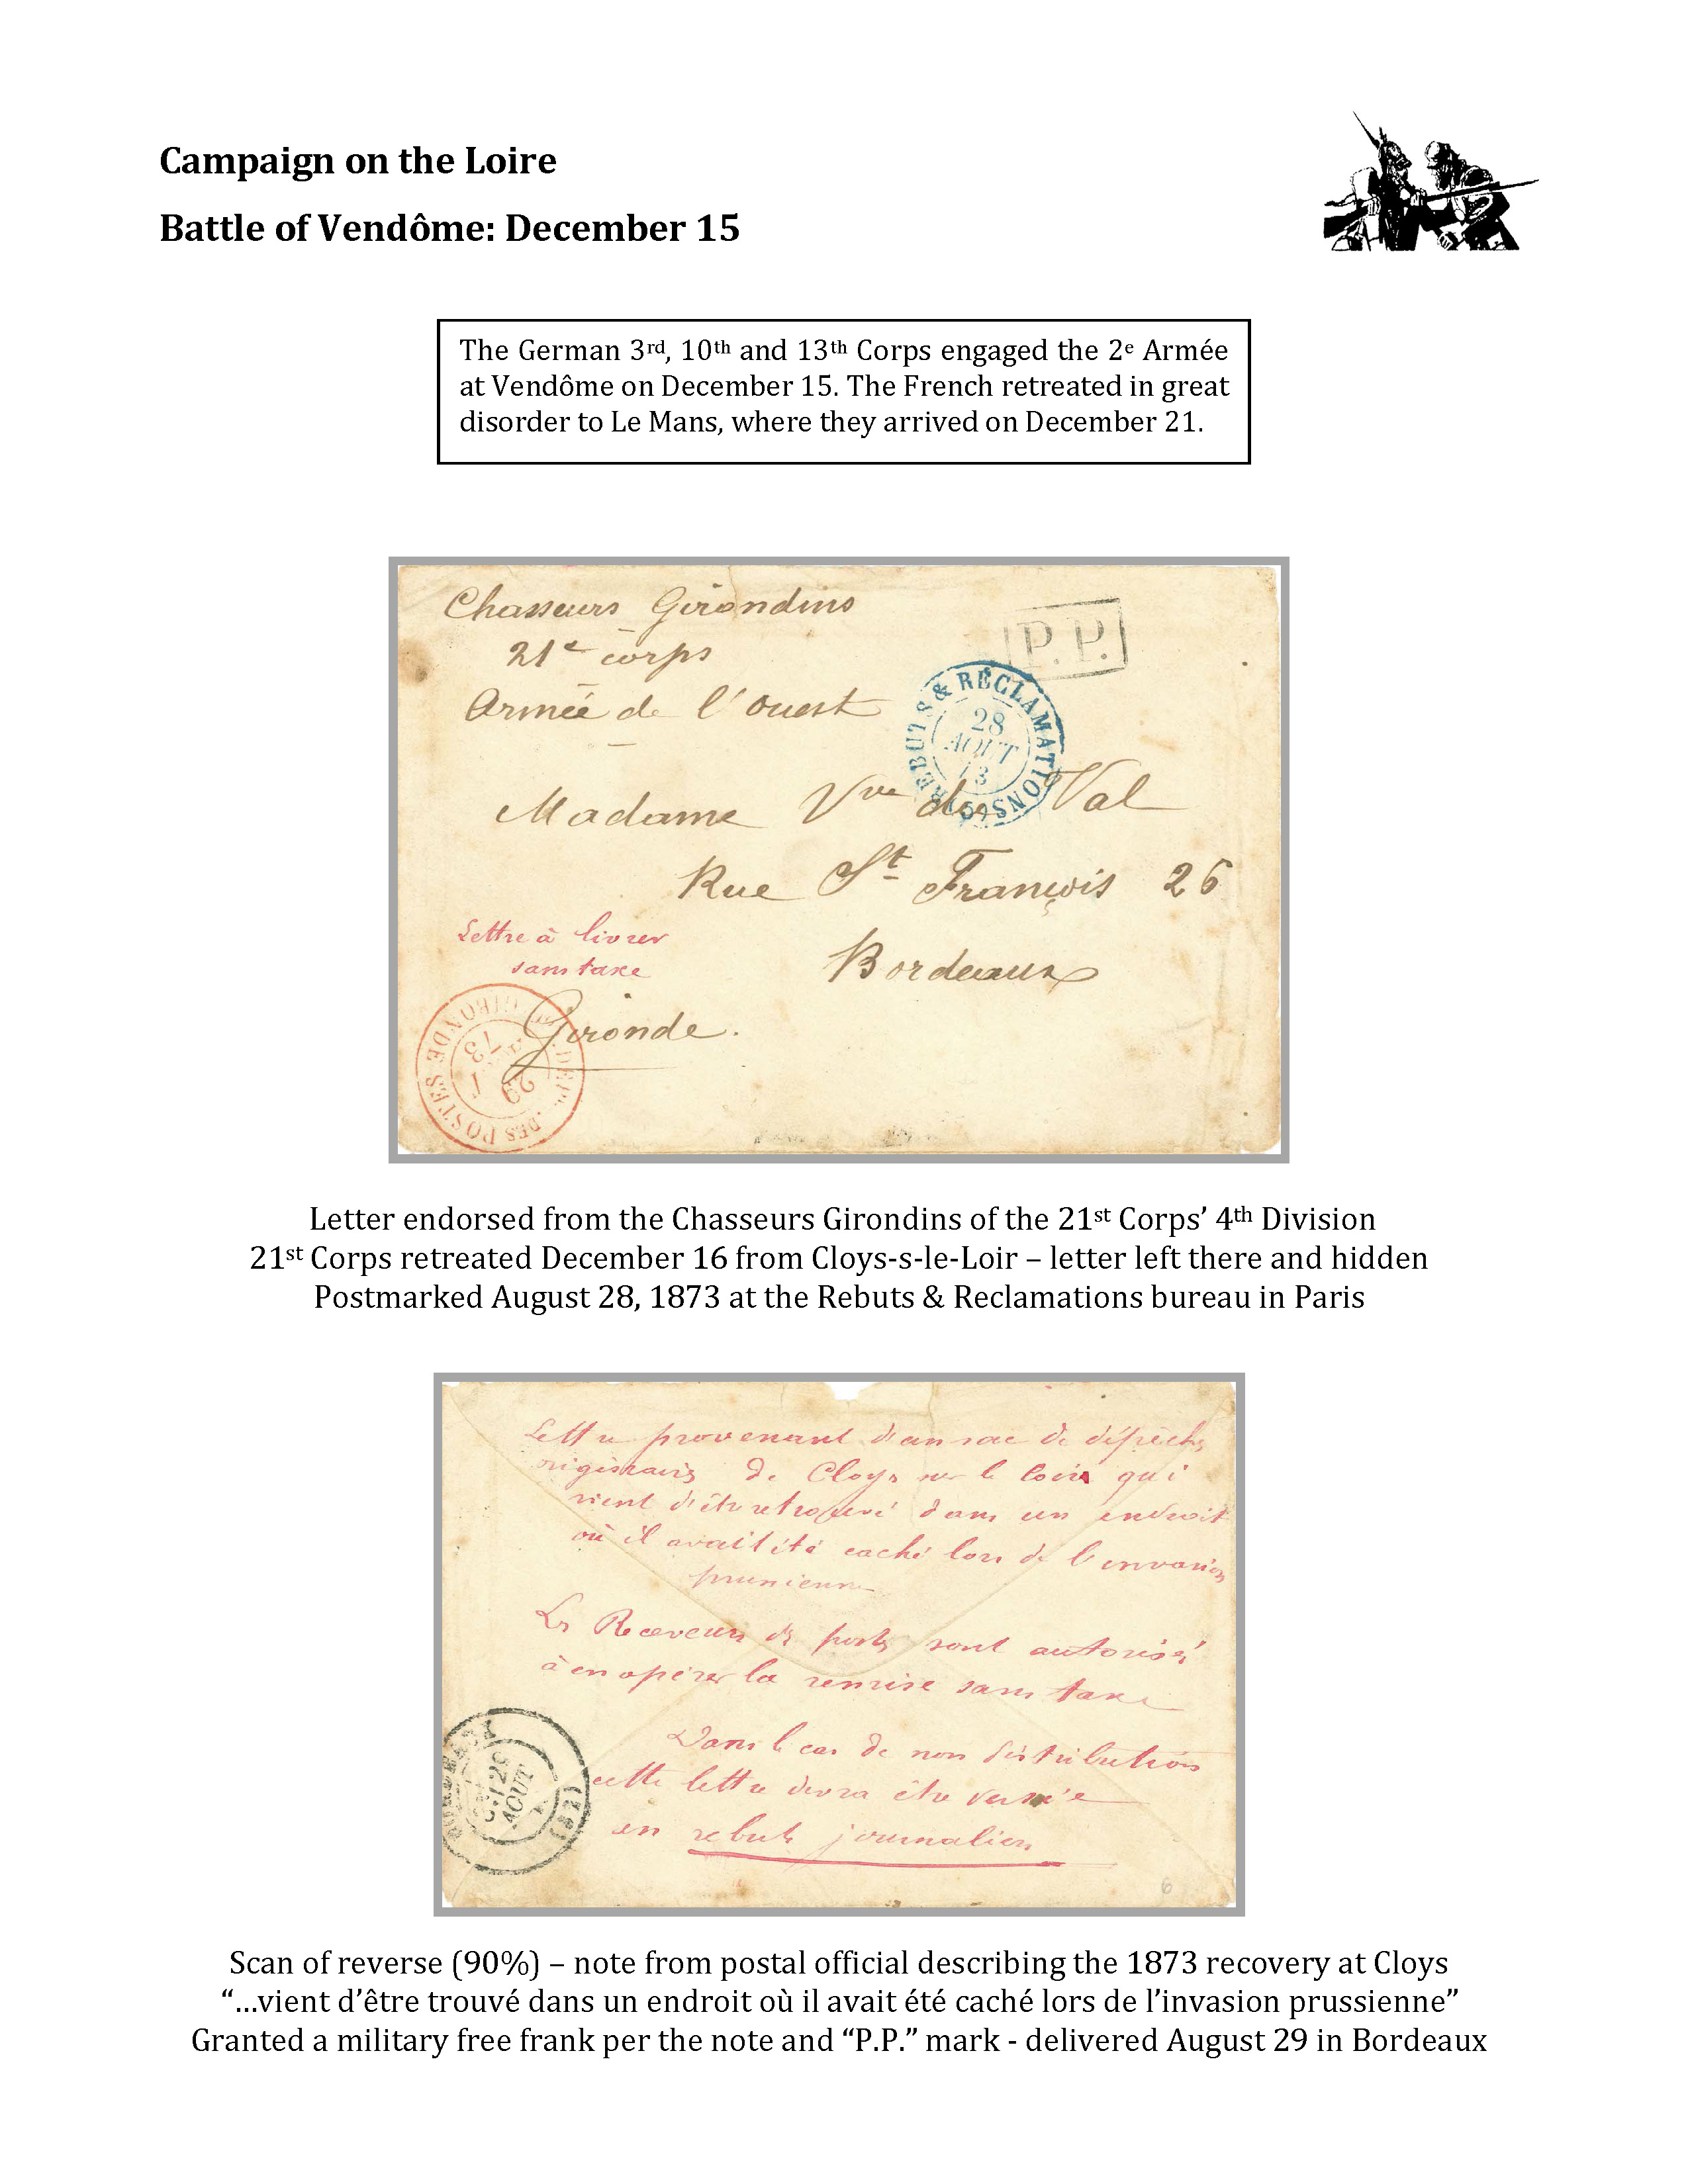 Campaign on the Loire
Battle of Vendôme: December 15
The German 3rd, 10th and 13th Corps engaged the 2e Armée
at Vendôme on December 15. The French retreated in great
disorder to Le Mans, where they arrived on December 21.
Chasseurs Girondins
21e corps
Armée de l'Ouest
P.P.
REBUTS & RÉCLAMATIONS
28
AOUT
Madame Vve du Val
Rue St François 26
Lettre à livrer
sans taxe
Bordeaux
Gironde.
DEPt. DES POSTES GIRONDE
29
73
Letter endorsed from the Chasseurs Girondins of the 21st Corps’ 4th Division
21st Corps retreated December 16 from Cloys-s-le-Loir – letter left there and hidden
Postmarked August 28, 1873 at the Rebuts & Reclamations bureau in Paris
Lettre provenant d'un sac de dépêches
originaires de Cloys sur le Loir qui
vient d'être retrouvé dans un endroit
où il avait été caché lors de l'invasion
prussienne
Les Receveurs des postes sont autorisés
à en opérer la remise sans taxe
Dans le cas de non distribution
cette lettre devra être versée
en rebuts journaliers
BORDEAUX
29
AOUT
6
Scan of reverse (90%) – note from postal official describing the 1873 recovery at Cloys
“…vient d’être trouvé dans un endroit où il avait été caché lors de l’invasion prussienne”
Granted a military free frank per the note and “P.P.” mark - delivered August 29 in Bordeaux